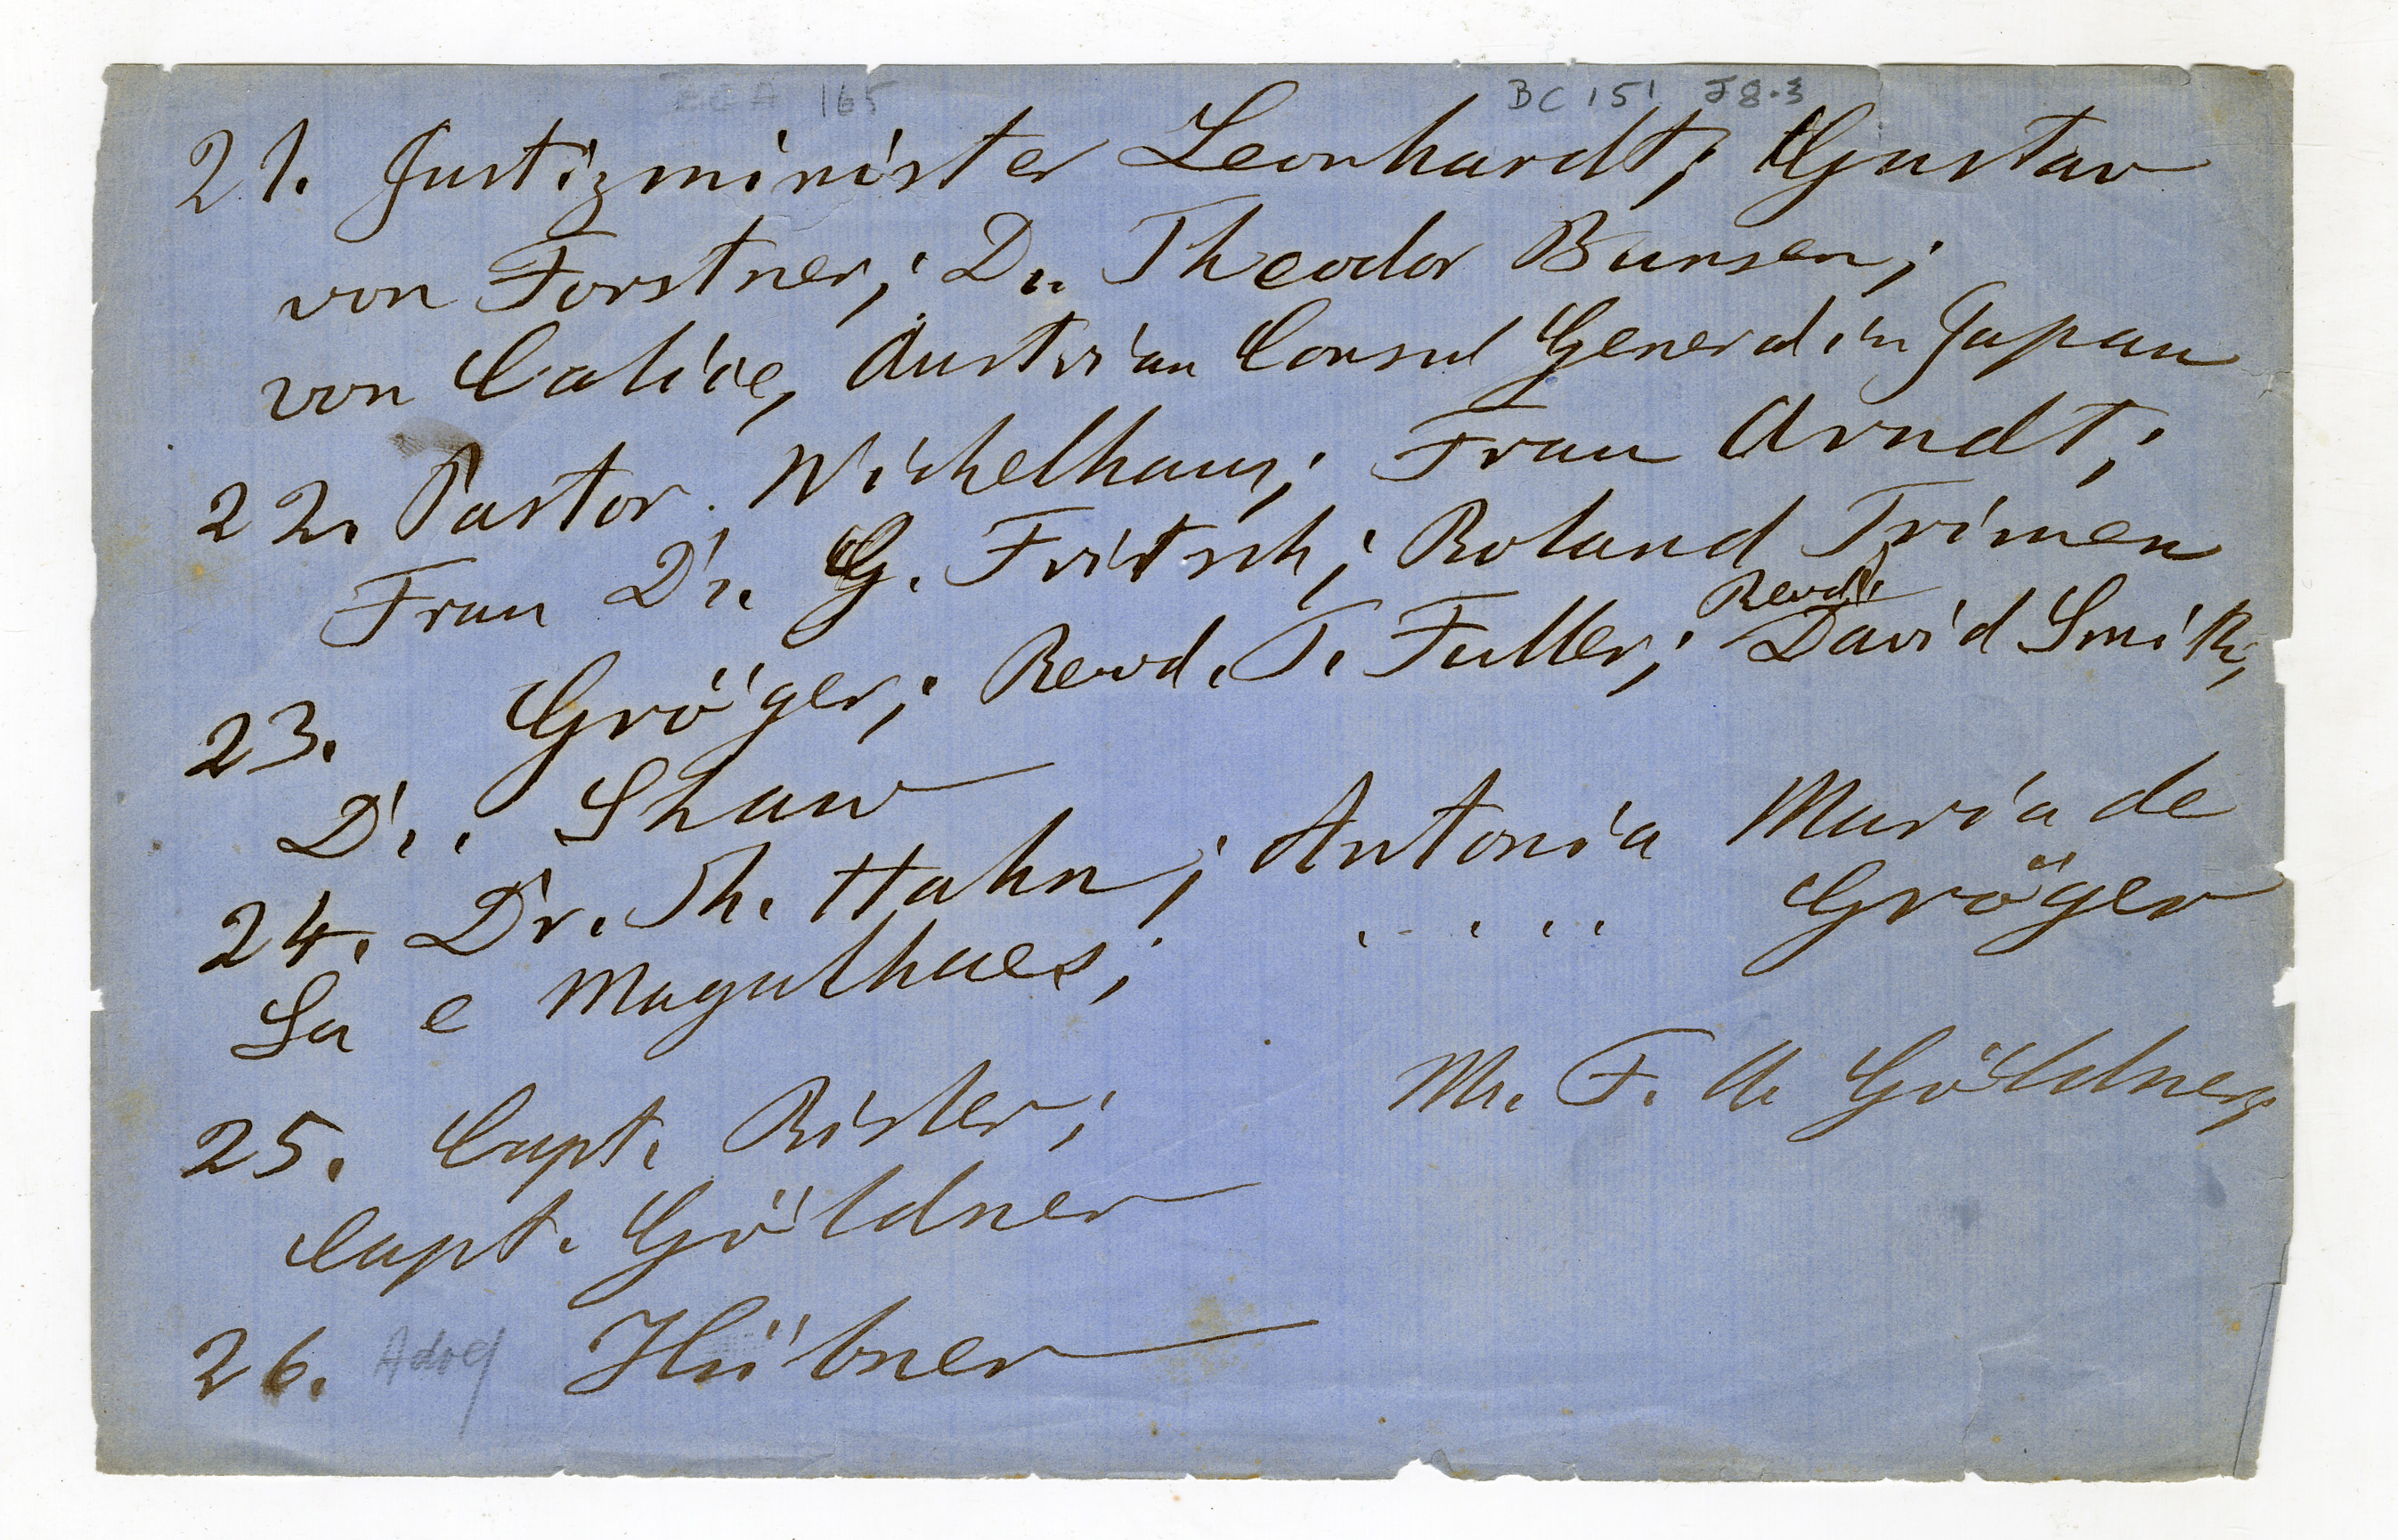 165 BC 151 J8.3
21. Justizminister Leonhardt; Gustav
von Forstner; Dr. Theodor Bunsen;
von Calice, Austrian Consul General in Japan
22. Pastor Wichelhaus; Frau Arndt;
Frau Dr. G. Fritsch; Roland Trimen
23. Gröger; Revd. T. Fuller; Revd. David Smith;
Dr. Shaw
24. Dr. Th. Hahn; Antonia Maria de
Sa e Magalhaes; ..... Gröger
25. Capt. Rister; Mr. F. A. Göldner;
Capt. Göldner
26. Adolf Hübner